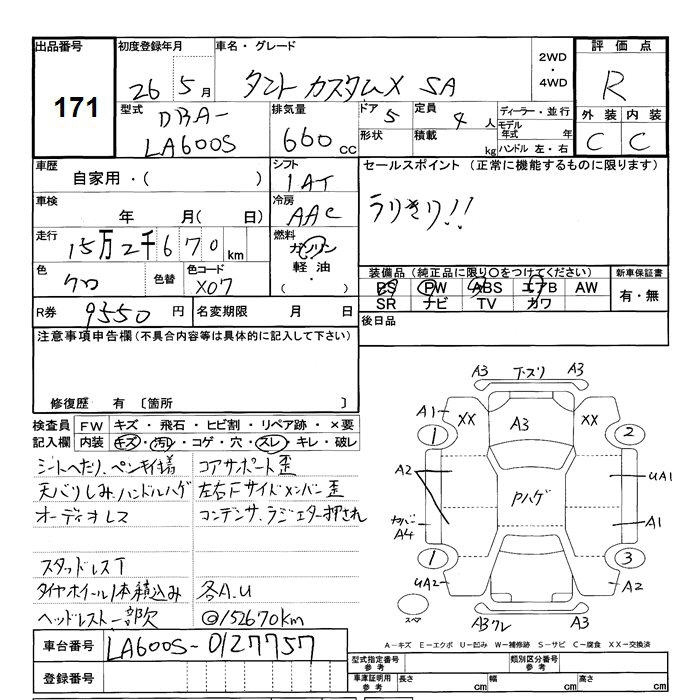 出品番号 初度登録年月 車名・グレード 2WD・4WD 評価点
171 26年5月 タント カスタムX SA R
型式 排気量 ドア 5 定員 4人 ディーラー・並行 外装 内装
DBA-LA600S 660cc 形状 積載 kg モデル年式 年 C C
ハンドル 左・右
車歴 シフト セールスポイント(正常に機能するものに限ります)
自家用・( ) IAT
車検 冷房 うりきり!!
年 月( 日) AAC
走行 燃料
15万2千670km ガソリン
色 色替 色コード 軽油・ 装備品(純正品に限り〇をつけてください) 新車保証書
クロ X07 ( ) PS PW ABS エアB AW 有・無
SR ナビ TV カワ
R券 9550円 名変期限 月 日 後日品
注意事項申告欄(不具合内容等は具体的に記入して下さい)
修復歴 有 〔箇所 〕
検査員 FW キズ・飛石・ヒビ割・リペア跡・×要
記入欄 内装 キズ・汚れ・コゲ・穴・スレ・キレ・破レ
シートへたり、ペンキ付着 コアサポート歪
天バリしみ、ハンドルハゲ 左右Fサイドメンバー歪
オーディオレス コンデンサ、ラジエター押され
スタッドレスT
タイヤホイール1本積込み 各A.U
ヘッドレスト一部欠 @152670km
車台番号 LA600S-0127757
登録番号
A3 T.スリ A3
A1 XX A3 XX
1 2
A2 Pハゲ UA1
カバーA4 A1
1 3
UA2 A2
スペア A3 ワレ A3
A-キズ E-エクボ U-凹み W-補修跡 S-サビ C-腐食 XX-交換済
型式指定番号 参考 類別区分番号 参考
車庫証明用 参考 長さ cm 幅 cm 高さ cm